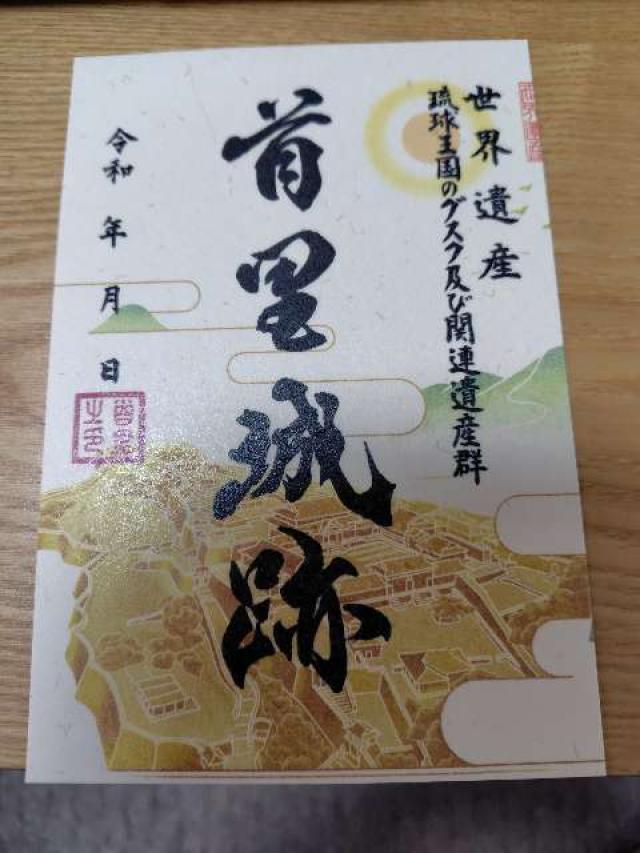 世界遺産
琉球王国のグスク及び関連遺産群
首里城跡
令和 年 月 日